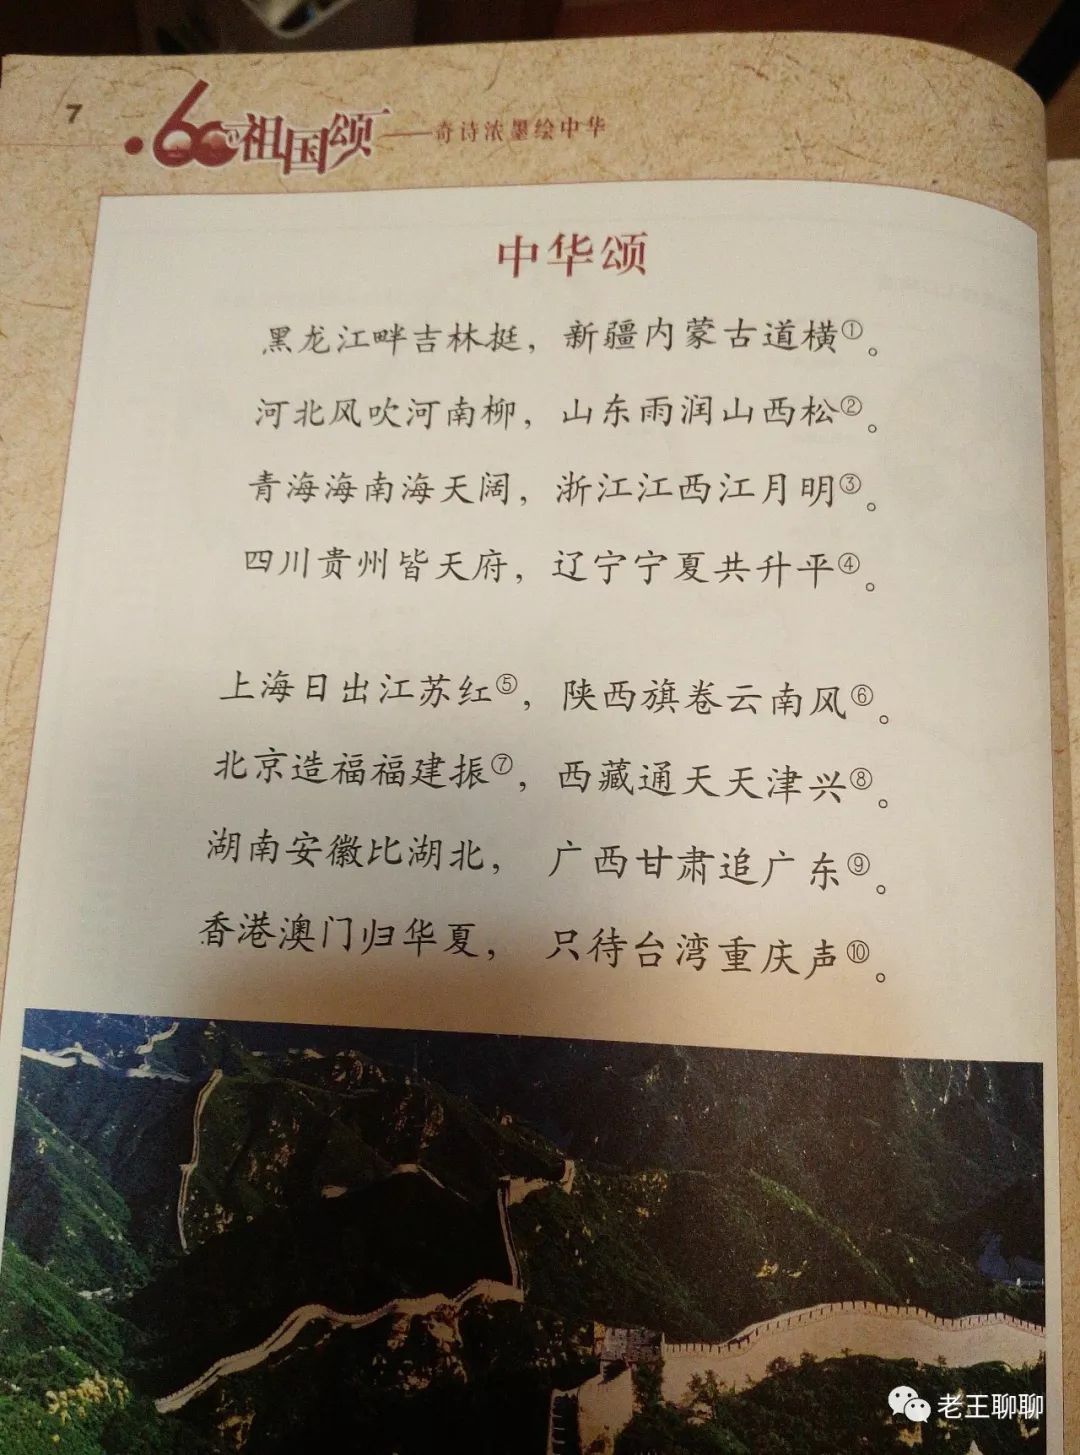 7
60 祖国颂——奇诗浓墨绘中华
中华颂
黑龙江畔吉林挺，新疆内蒙古道横①。
河北风吹河南柳，山东雨润山西松②。
青海海南海天阔，浙江江西江月明③。
四川贵州皆天府，辽宁宁夏共升平④。
上海日出江苏红⑤，陕西旗卷云南风⑥。
北京造福福建振⑦，西藏通天天津兴⑧。
湖南安徽比湖北，广西甘肃追广东⑨。
香港澳门归华夏，只待台湾重庆声⑩。
老王聊聊